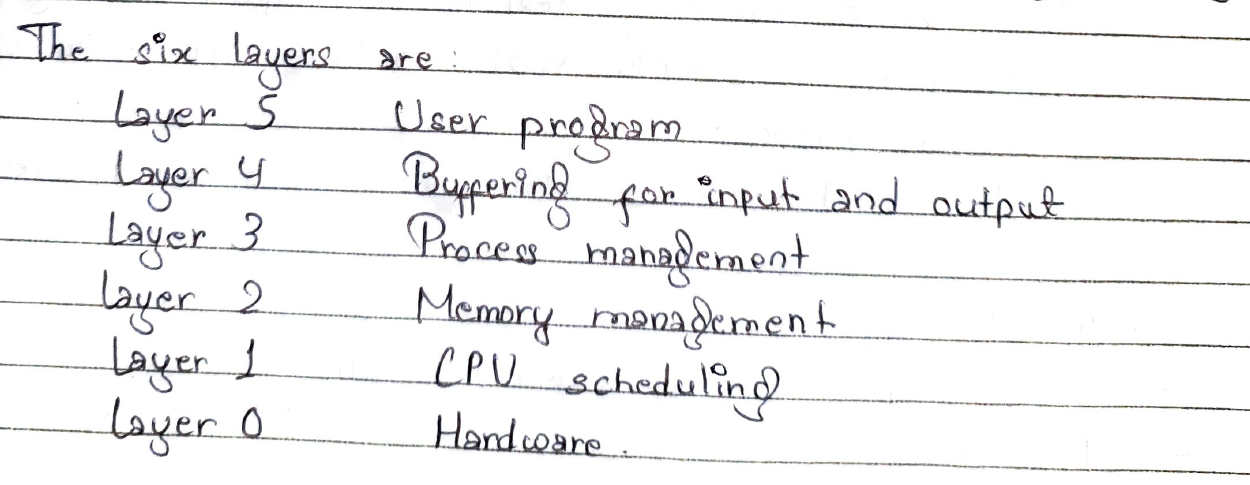 The six layers are :
Layer 5 User program
Layer 4 Buffering for input and output
Layer 3 Process management
Layer 2 Memory management
Layer 1 CPU scheduling
Layer 0 Hardware.